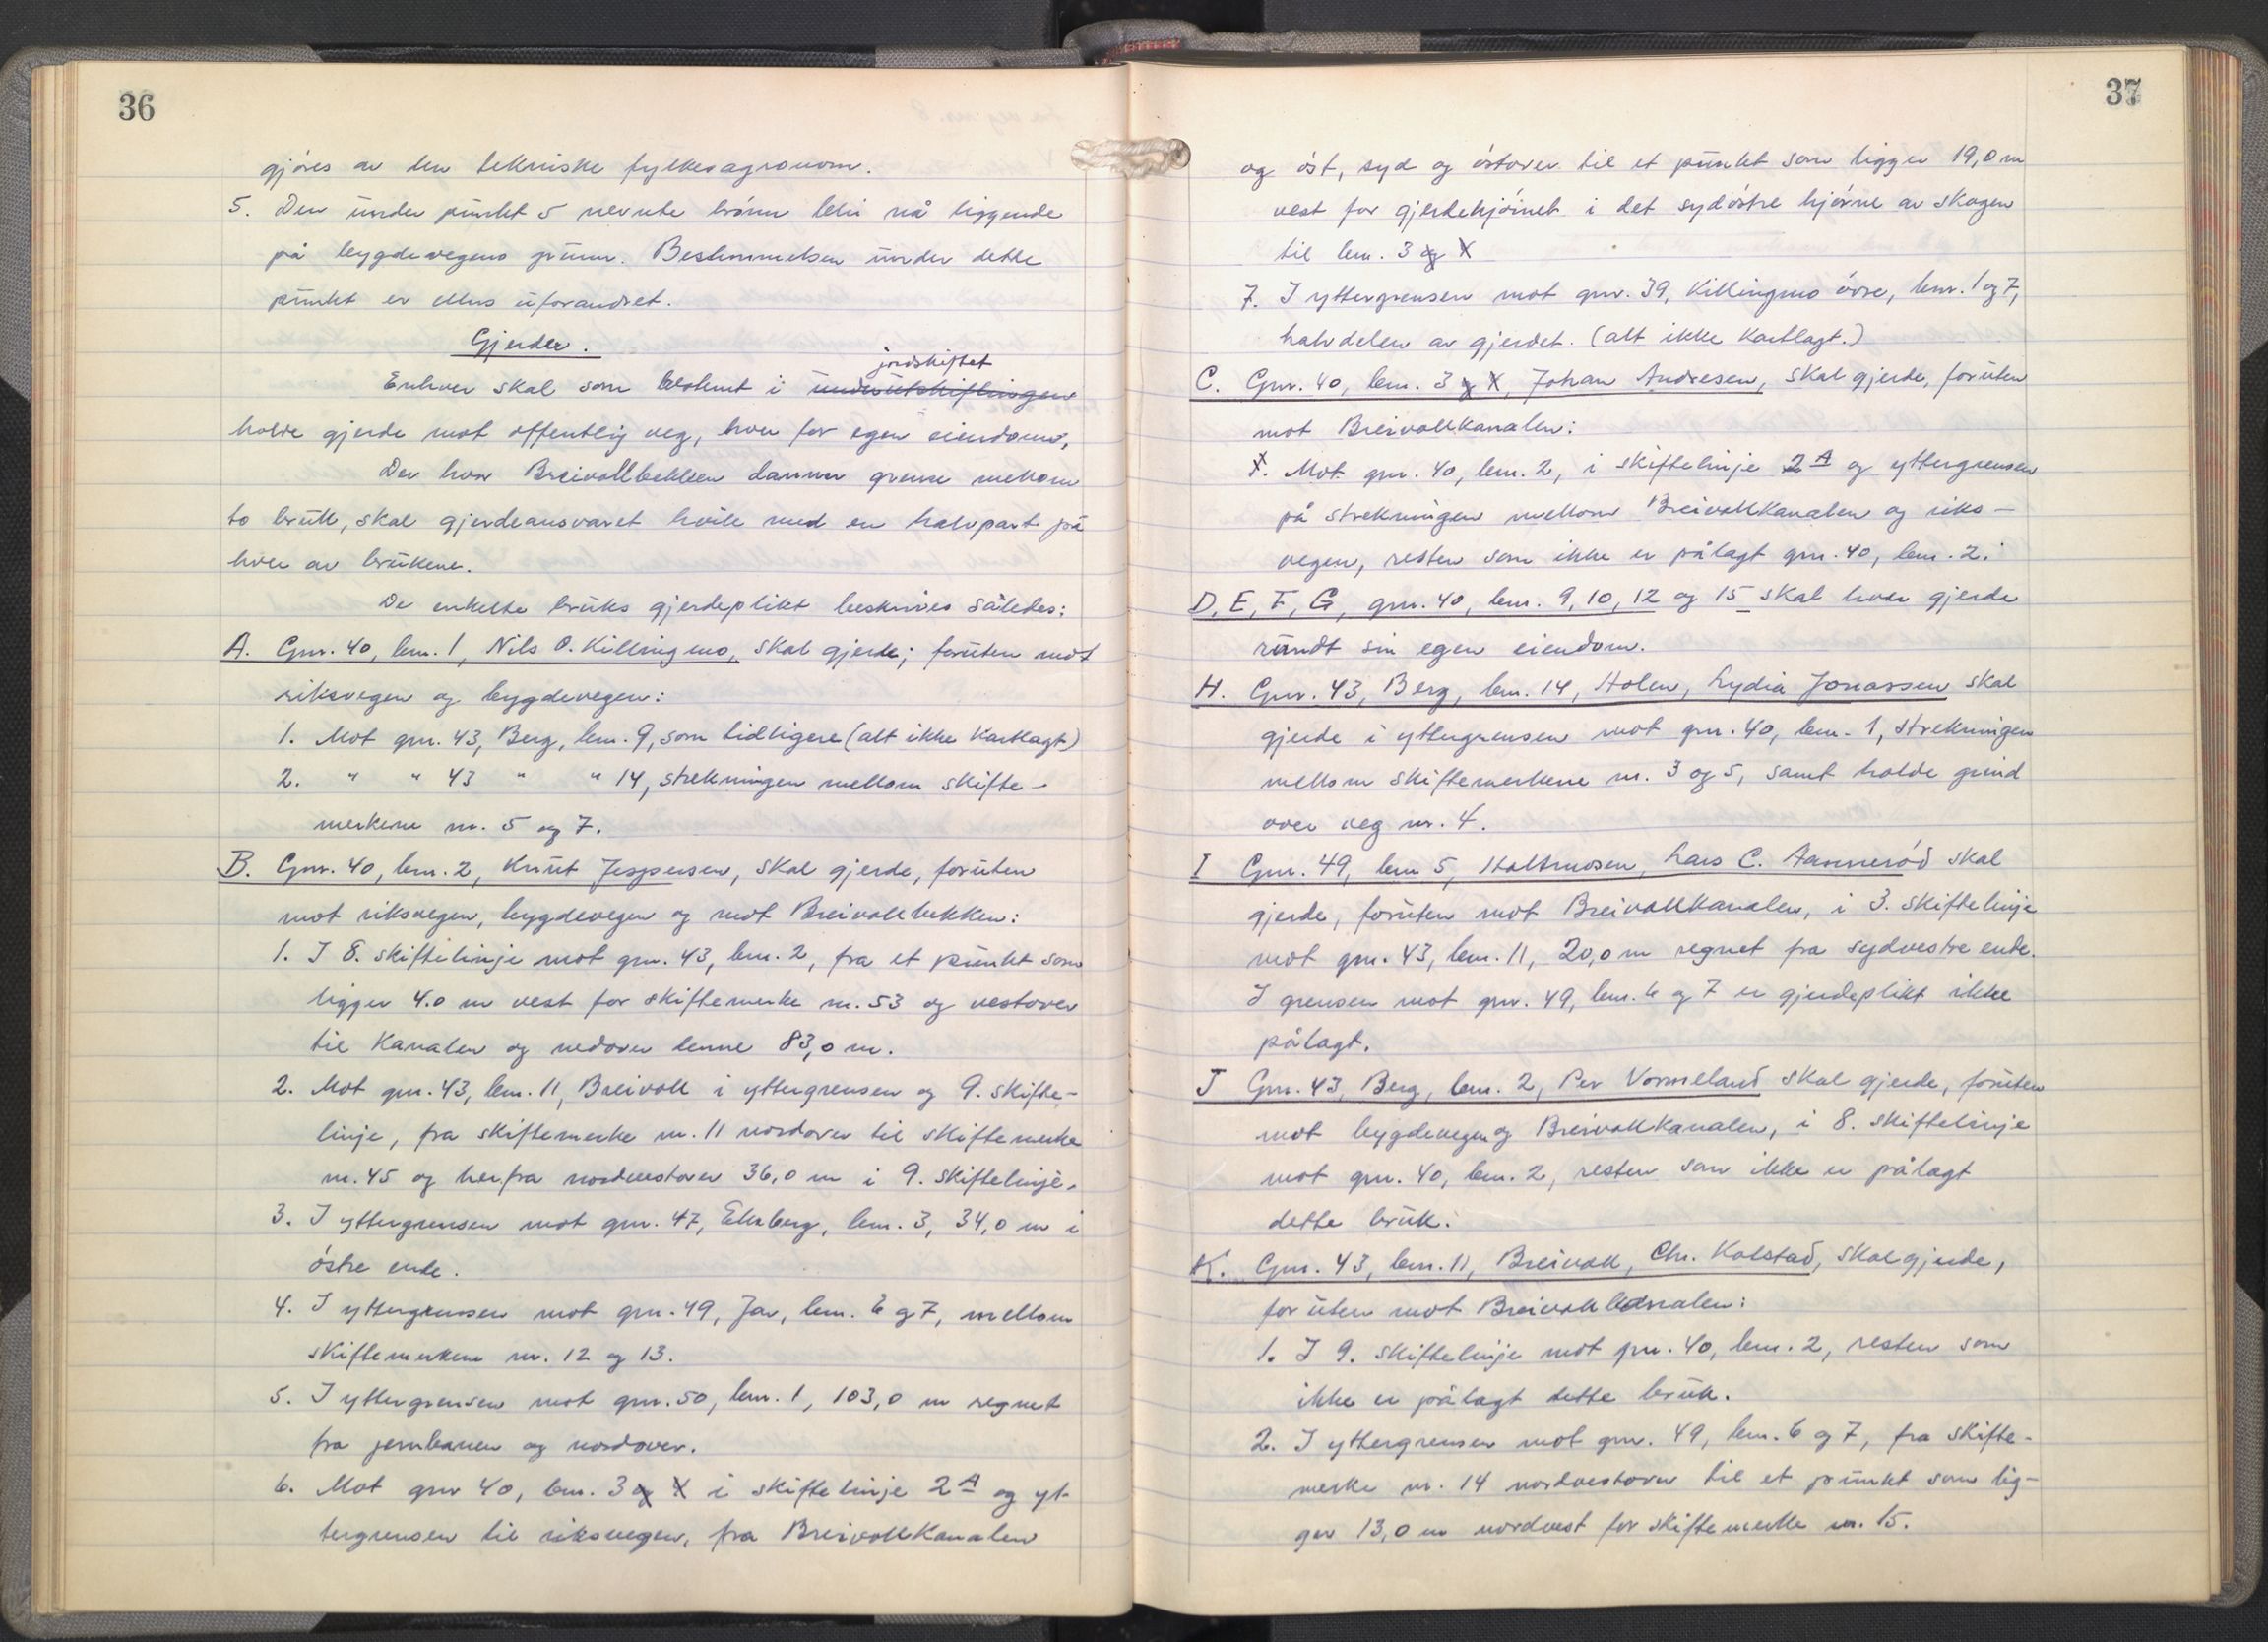 36
gjøres av den tekniske fylkesagronom.
5. Den under punkt 5 nevnte brønn blir nå liggende
på bygdevegens grunn. Bestemmelsen under dette
punkt er ellers uforandret.
Gjerder.
jordskiftet
Enhver skal som bestemt i underutskiftningen
holde gjerde mot offentlig veg, hver for egen eiendom,
Der hvor Breivollbekken danner grense mellom
to bruk, skal gjerdeansvaret hvile med en halvpart på
hver av brukene.
De enkelte bruks gjerdeplikt beskrives således:
A. Gnr. 40, bnr. 1, Nils O. Killingmo, skal gjerde; foruten mot
riksvegen og bygdevegen:
1. Mot gnr. 43, Berg, bnr. 9, som tidligere (alt ikke kartlagt)
2. " " 43 " " 14, strekningen mellom skifte-
merkene nr. 5 og 7.
B. Gnr. 40, bnr. 2, Knut Jespersen, skal gjerde, foruten
mot riksvegen, bygdevegen og mot Breivollbekken:
1. I 8. skiftelinje mot gnr. 43, bnr. 2, fra et punkt som
ligger 4.0 m vest for skiftemerke nr. 53 og vestover
til Kanalen og nedover denne 83,0 m.
2. Mot gnr. 43, bnr. 11, Breivoll i yttergrensen og 9. skifte-
linje, fra skiftemerke nr. 11 nordover til skiftemerke
nr. 45 og herfra nordvestover 36,0 m i 9. skiftelinje.
3. I yttergrensen mot gnr. 47, Ekeberg, bnr. 3, 34,0 m i
østre ende.
4. I yttergrensen mot gnr. 49, Jar, bnr. 6 og 7, mellom
skiftemerkene nr. 12 og 13.
5. I yttergrensen mot gnr. 50, bnr. 1, 103,0 m regnet
fra jernbanen og nordover.
6. Mot gnr 40, bnr. 3 og 4 i skiftelinje 2A og yt-
tergrensen til riksvegen, fra Breivollkanalen
37
og øst, syd og østover til et punkt som ligger 19,0 m
vest for gjerdehjørnet i det sydøstre hjørne av skogen
til bnr. 3 og 4
7. I yttergrensen mot gnr. 39, Killingmo øvre, bnr. 1 og 7,
halvdelen av gjerdet. (alt ikke kartlagt.)
C. Gnr. 40, bnr. 3 og 4, Johan Andresen, skal gjerde, foruten
mot Breivollkanalen:
1. Mot gnr. 40, bnr. 2, i skiftelinje 2A og yttergrensen
på strekningen mellom Breivollkanalen og riks-
vegen, resten som ikke er pålagt gnr. 40, bnr. 2.
D, E, F, G, gnr. 40, bnr. 9, 10, 12 og 15 skal hver gjerde
rundt sin egen eiendom.
H. Gnr. 43, Berg, bnr. 14, Holen, Lydia Jonassen skal
gjerde i yttergrensen mot gnr. 40, bnr. 1, strekningen
mellom skiftemerkene nr. 3 og 5, samt holde grind
over veg nr. 4.
I Gnr. 49, bnr 5, Holtmosen, Lars C. Aannerød skal
gjerde, foruten mot Breivollkanalen, i 3. skiftelinje
mot gnr. 43, bnr. 11, 20,0 m regnet fra sydvestre ende.
I grensen mot gnr. 49, bnr. 6 og 7 er gjerdeplikt ikke
pålagt.
J Gnr. 43, Berg, bnr. 2, Per Vormeland skal gjerde, foruten
mot bygdevegen og Breivollkanalen, i 8. skiftelinje
mot gnr. 40, bnr. 2, resten som ikke er pålagt
dette bruk.
K. Gnr. 43, bnr. 11, Breivoll, Chr. Kolstad, skal gjerde,
foruten mot Breivollkanalen:
1. I 9. skiftelinje mot gnr. 40, bnr. 2, resten som
ikke er pålagt dette bruk.
2. I yttergrensen mot gnr. 49, bnr. 6 og 7, fra skifte-
merke nr. 14 nordvestover til et punkt som lig-
ger 13,0 m nordvest for skiftemerke nr. 15.